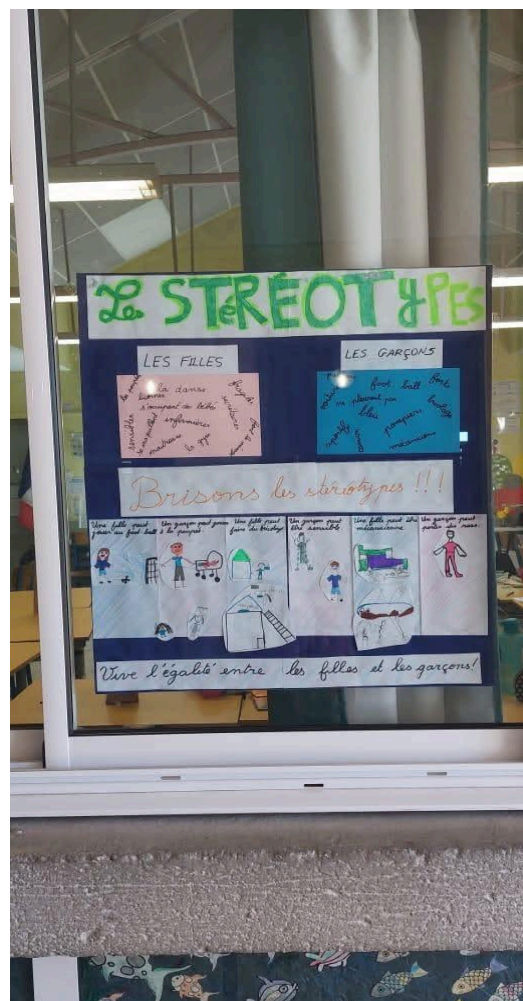 Les STéRÉOTyPES
LES FILLES
LES GARÇONS
la danse
bonnes
s'occupent de bébé
infirmières
maîtresse
le gym
sensibles
fragile
foot ball
fort
ne pleurent pas
bleu
pompiers
mécanicien
bricolage
voiture
Brisons les stéréotypes !!!
Une fille peut
jouer au foot ball
Un garçon peut jouer
à la poupée
Une fille peut
faire du bricolage
Un garçon peut
être sensible
Une fille peut être
mécanicienne
Un garçon peut
porter du rose
Vive l'égalité entre les filles et les garçons!